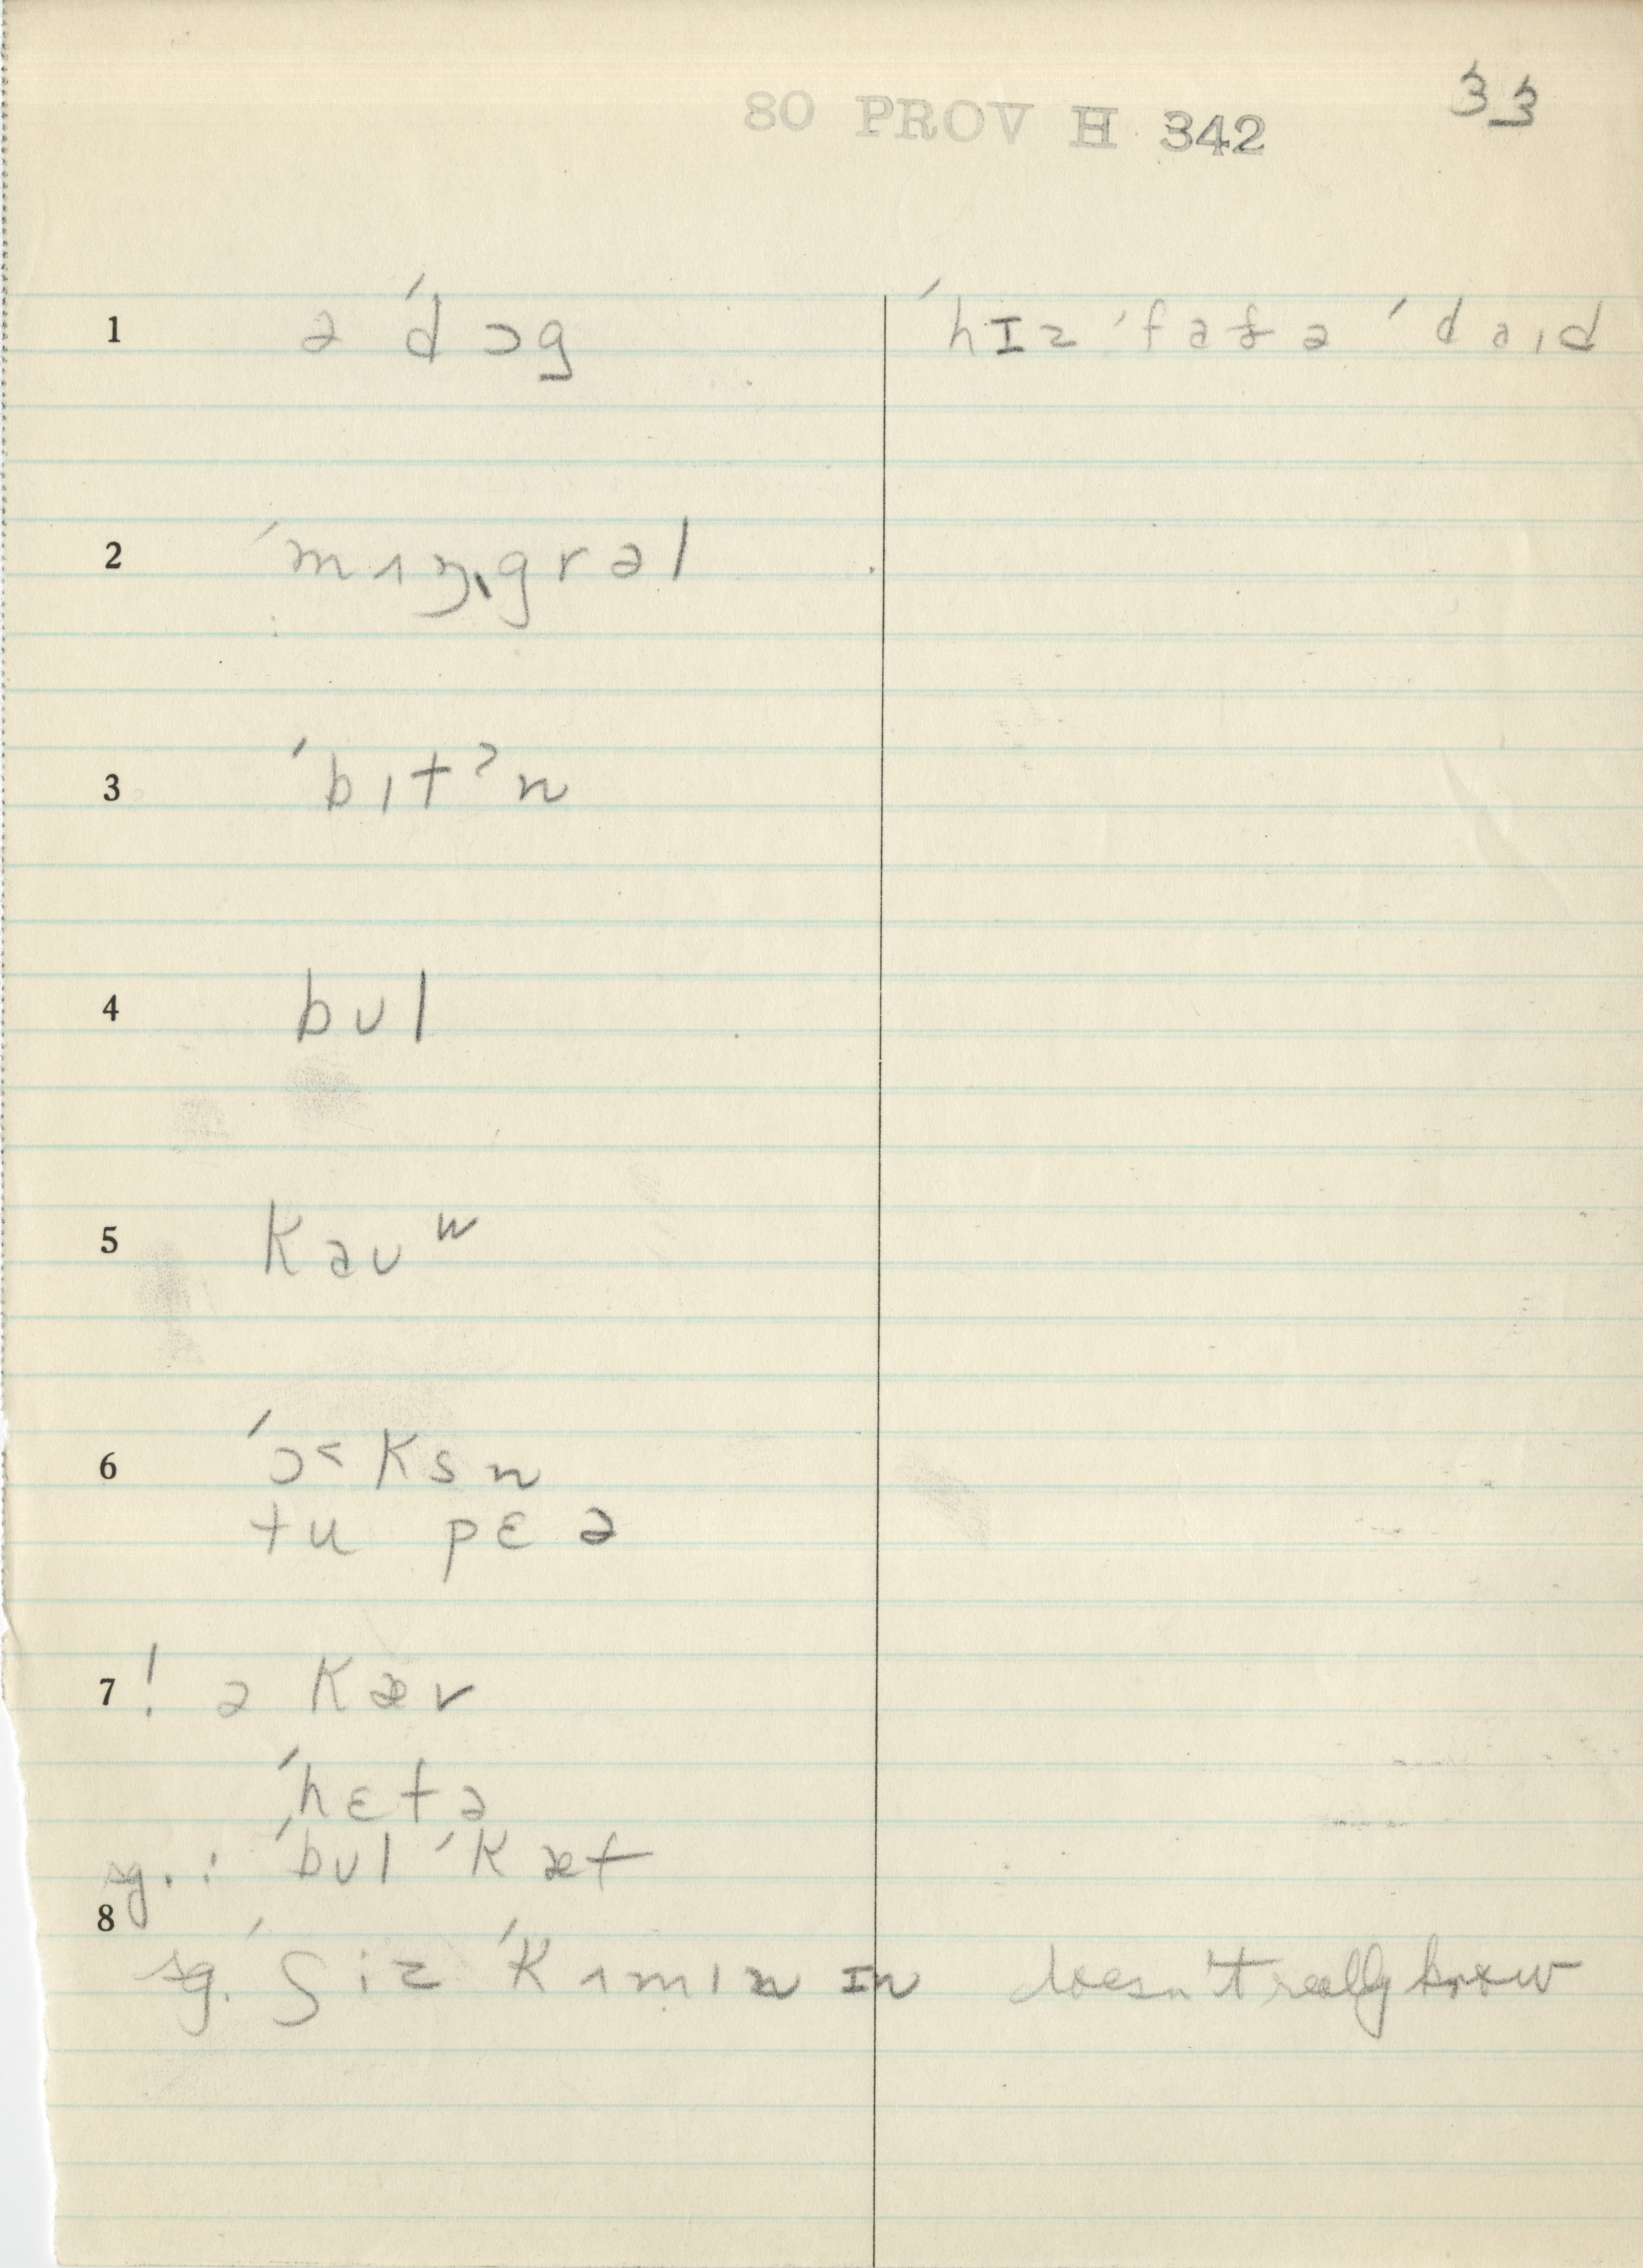 33
80 PROV H 342
1 ə ˈdɔg ˈhɪz ˈfɑðə ˈdaɪd
2 ˈmɪŋgrəl
3 ˈbɪtˀn
4 bʊl
5 Kaʊʷ
6 ˈɔ˂Ksn
tu pɛə
7 ! ə Kæv
ˈhɛtə
sg.: ˈbʊl ˈKæt
8
sg. ˈʃiz ˈKʌmɪn ɪn doesn't really know